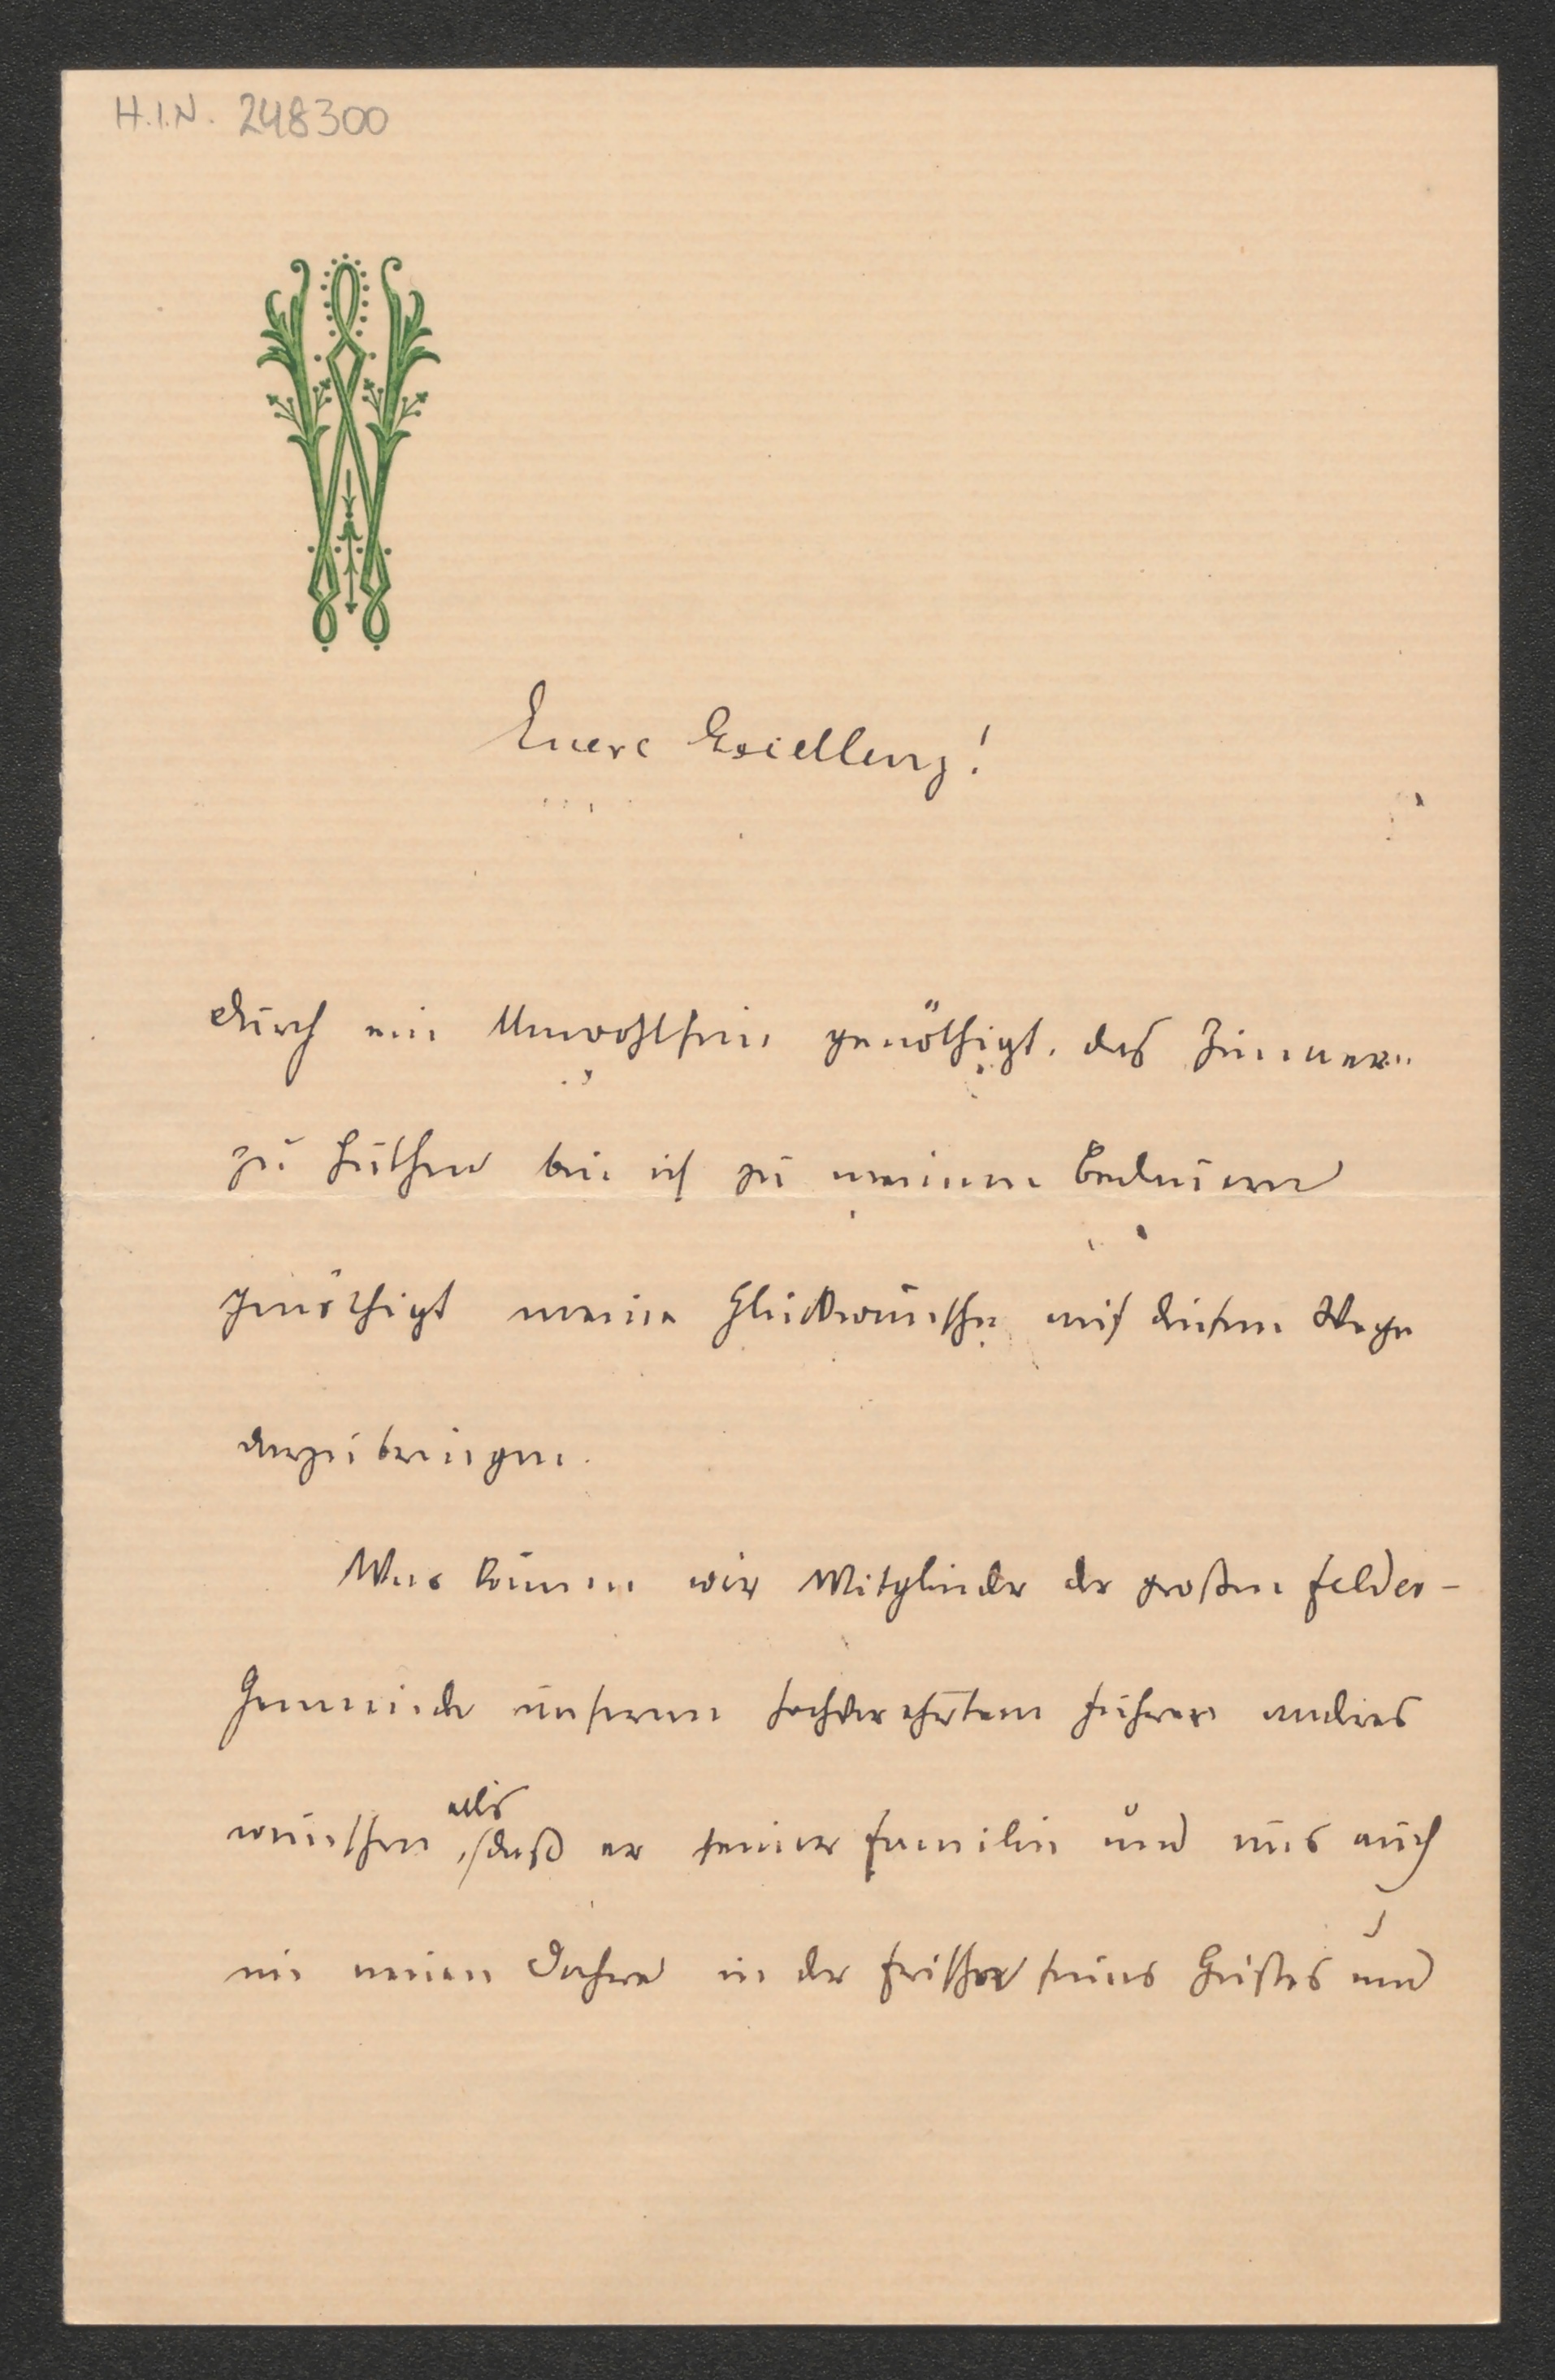 H.I.N. 248300
Euere Excellenz!
durch ein Unwohlsein genöthigt, das Zimmer
zu hüthen bin ich zu meinem Bedauern
genöthigt meine Glückwünsche auf diesem Wege
darzubringen.
Was können wir Mitglieder der großen Felder-
Gemeinde unserem hochverehrtem Führer anderes
wünschen, als daß er seiner Familie und uns auch
im neuen Jahre in der Frische seines Geistes und